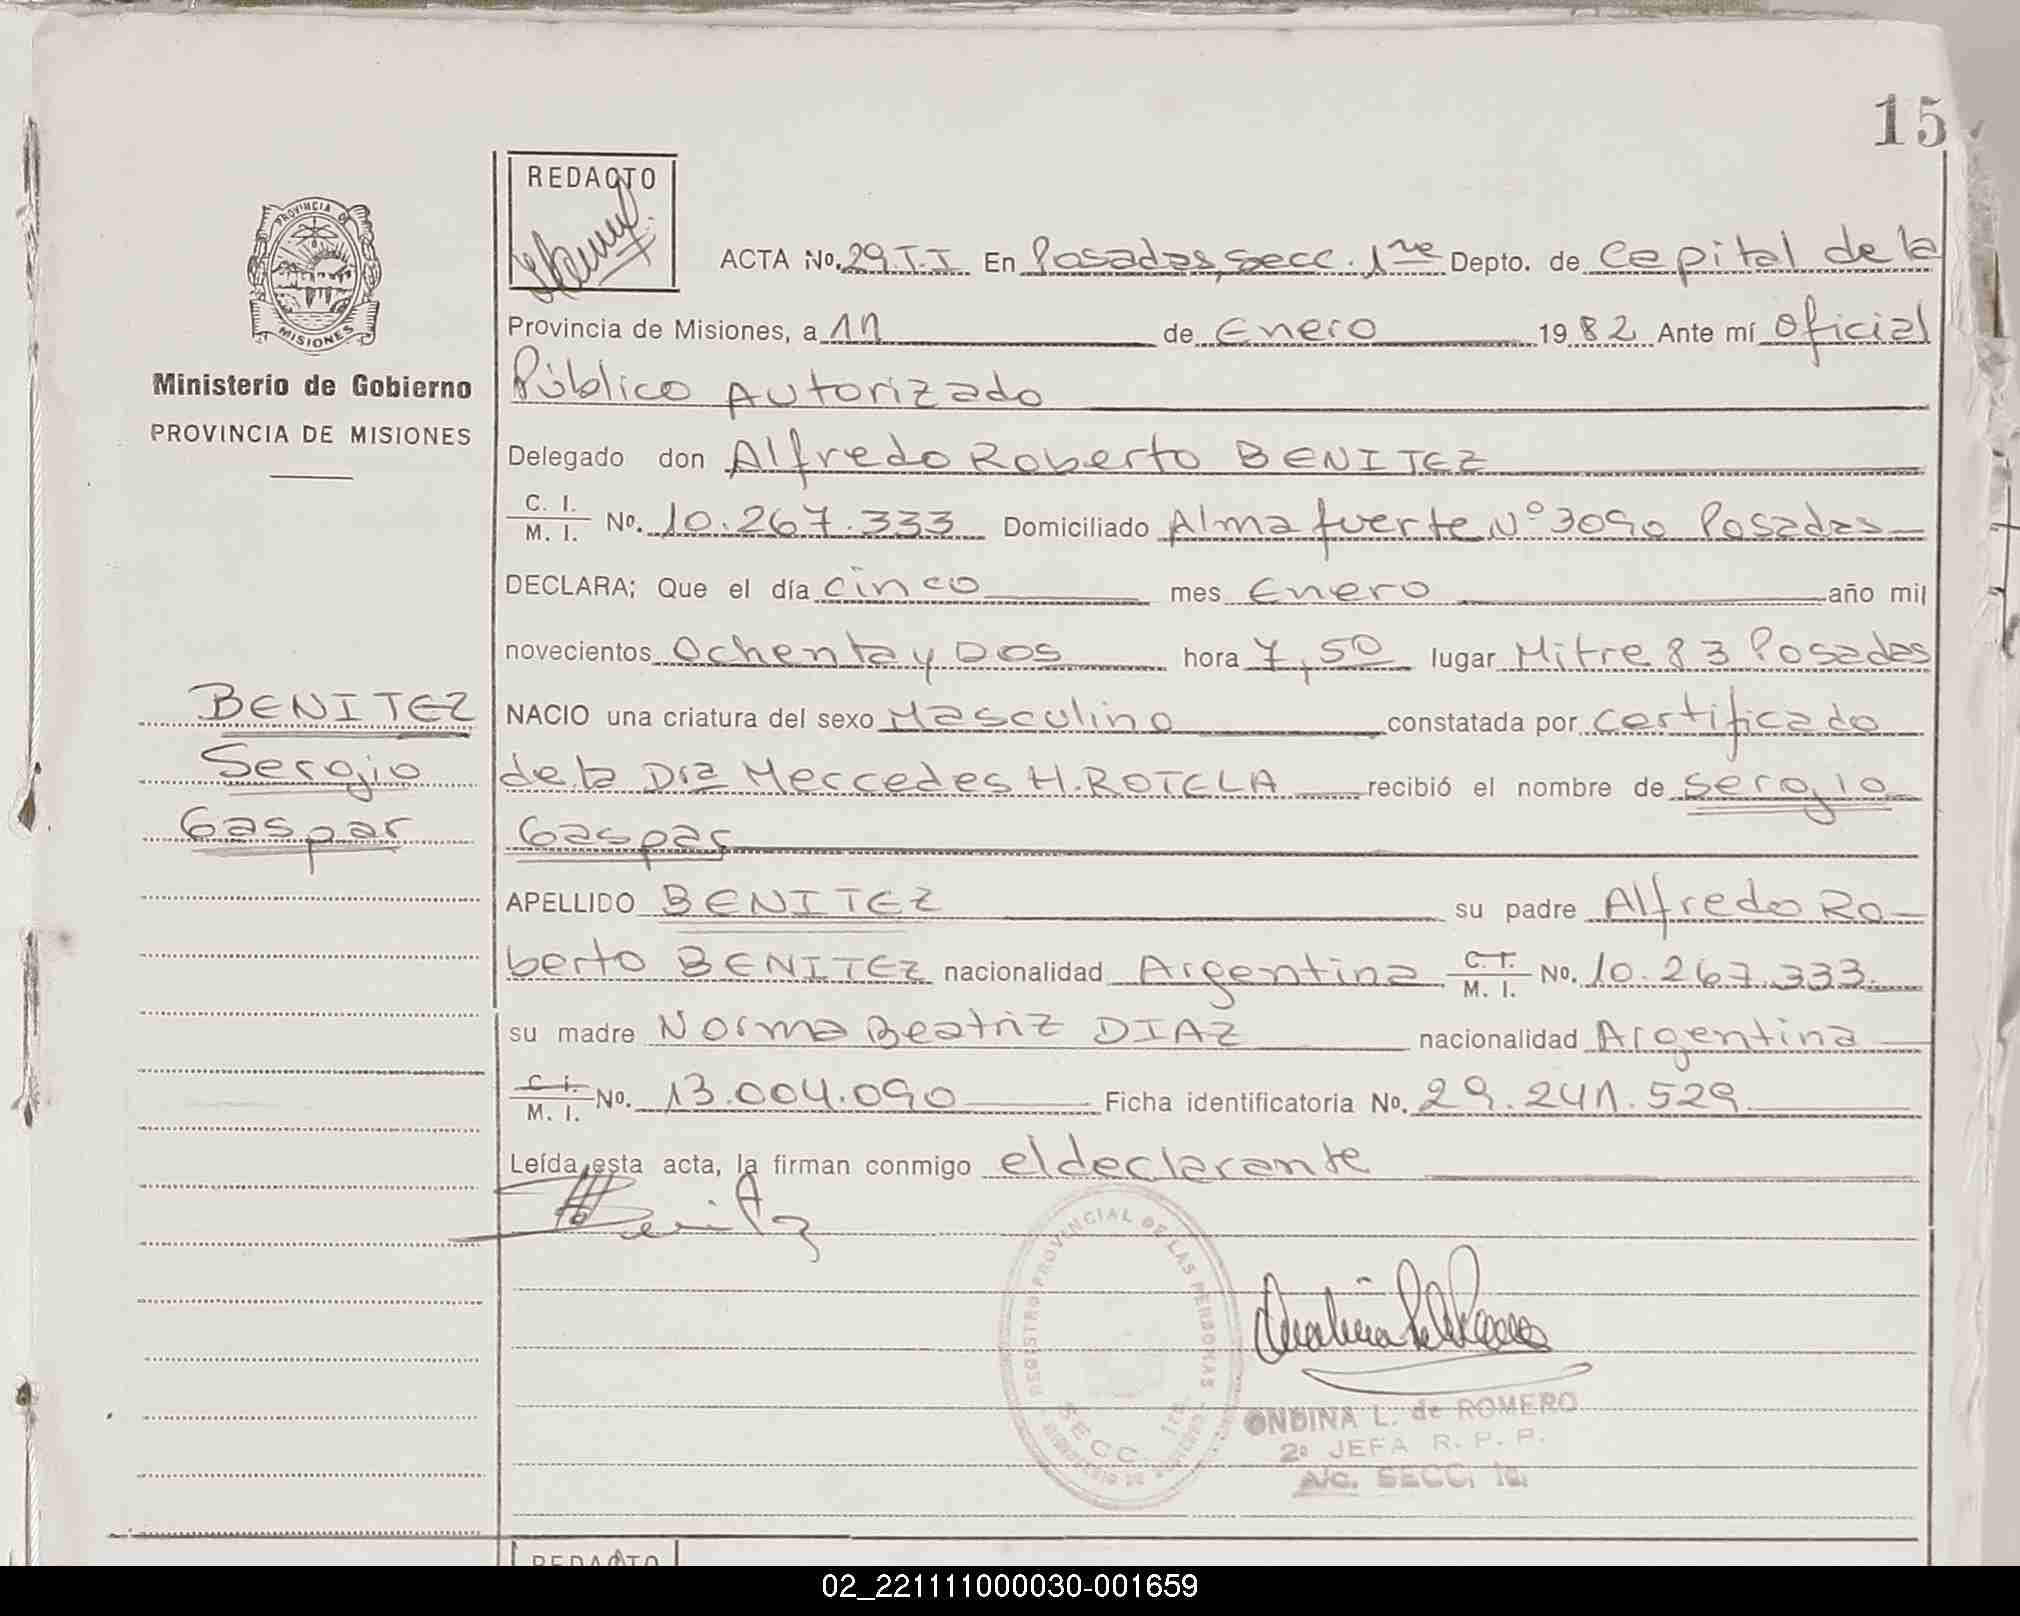 15
REDACTO
PROVINCIA DE
MISIONES
Ministerio de Gobierno
PROVINCIA DE MISIONES
ACTA No. 29.T.I En Posadas, secc. 1ra Depto. de Capital de la
Provincia de Misiones, a 11 de Enero 1982 Ante mí Oficial
Público Autorizado
Delegado don Alfredo Roberto BENITEZ
C. I. / M. I. No. 10.267.333 Domiciliado Almafuerte Nº 3090 Posadas
DECLARA; Que el día cinco mes Enero año mil
novecientos Ochenta y Dos hora 7,50 lugar Mitre 83 Posadas
BENITEZ
Sergio
Gaspar
NACIO una criatura del sexo Masculino constatada por certificado
de la Dra Mercedes H. ROTELA recibió el nombre de Sergio
Gaspar
APELLIDO BENITEZ su padre Alfredo Ro-
berto BENITEZ nacionalidad Argentina C. I. / M. I. No. 10.267.333.
su madre Norma Beatriz DIAZ nacionalidad Argentina
C. I. / M. I. No. 13.004.090 Ficha identificatoria No. 29.241.529
Leída esta acta, la firman conmigo el declarante
REGISTRO PROVINCIAL DE LAS PERSONAS
SECC. 1ra.
ONDINA L. de ROMERO
2a JEFA R. P. P.
A/c. SECC. 1a.
REDACTO
02_221111000030-001659